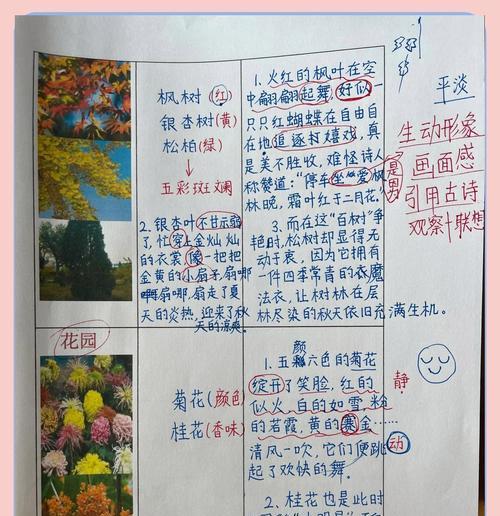 枫树(红)
银杏树(黄)
松柏(绿)
五彩斑斓
1、火红的枫叶在空
中翩翩起舞,好似一
只只红蝴蝶在自由自
在地追逐打嬉戏,真
是美不胜收,难怪诗人
称赞道:“停车坐爱枫
林晚,霜叶红于二月花。”
2、银杏叶不甘示弱
了,忙穿上金灿灿
的衣裳,像一把把
金黄的小扇子,扇哪
扇哪,扇走了夏
天的炎热,迎来了秋
天的凉爽。
3、而在这“百树”争
艳时,松树却显得无
动于衷,因为它拥有
一件四季常青的衣魔
法衣,让树林在层
林尽染的秋天依旧充满生机。
平淡
生动形象
画面感
引用古诗
观察+联想
花园
菊花(颜色)
桂花(香味)
颜
1、五六色的菊花
绽开了笑脸,红的
似火,白的如雪,粉
的若霞,黄的赛金……
清风一吹,它们便跳
起了欢快的舞。
静
动
2、桂花也是此时